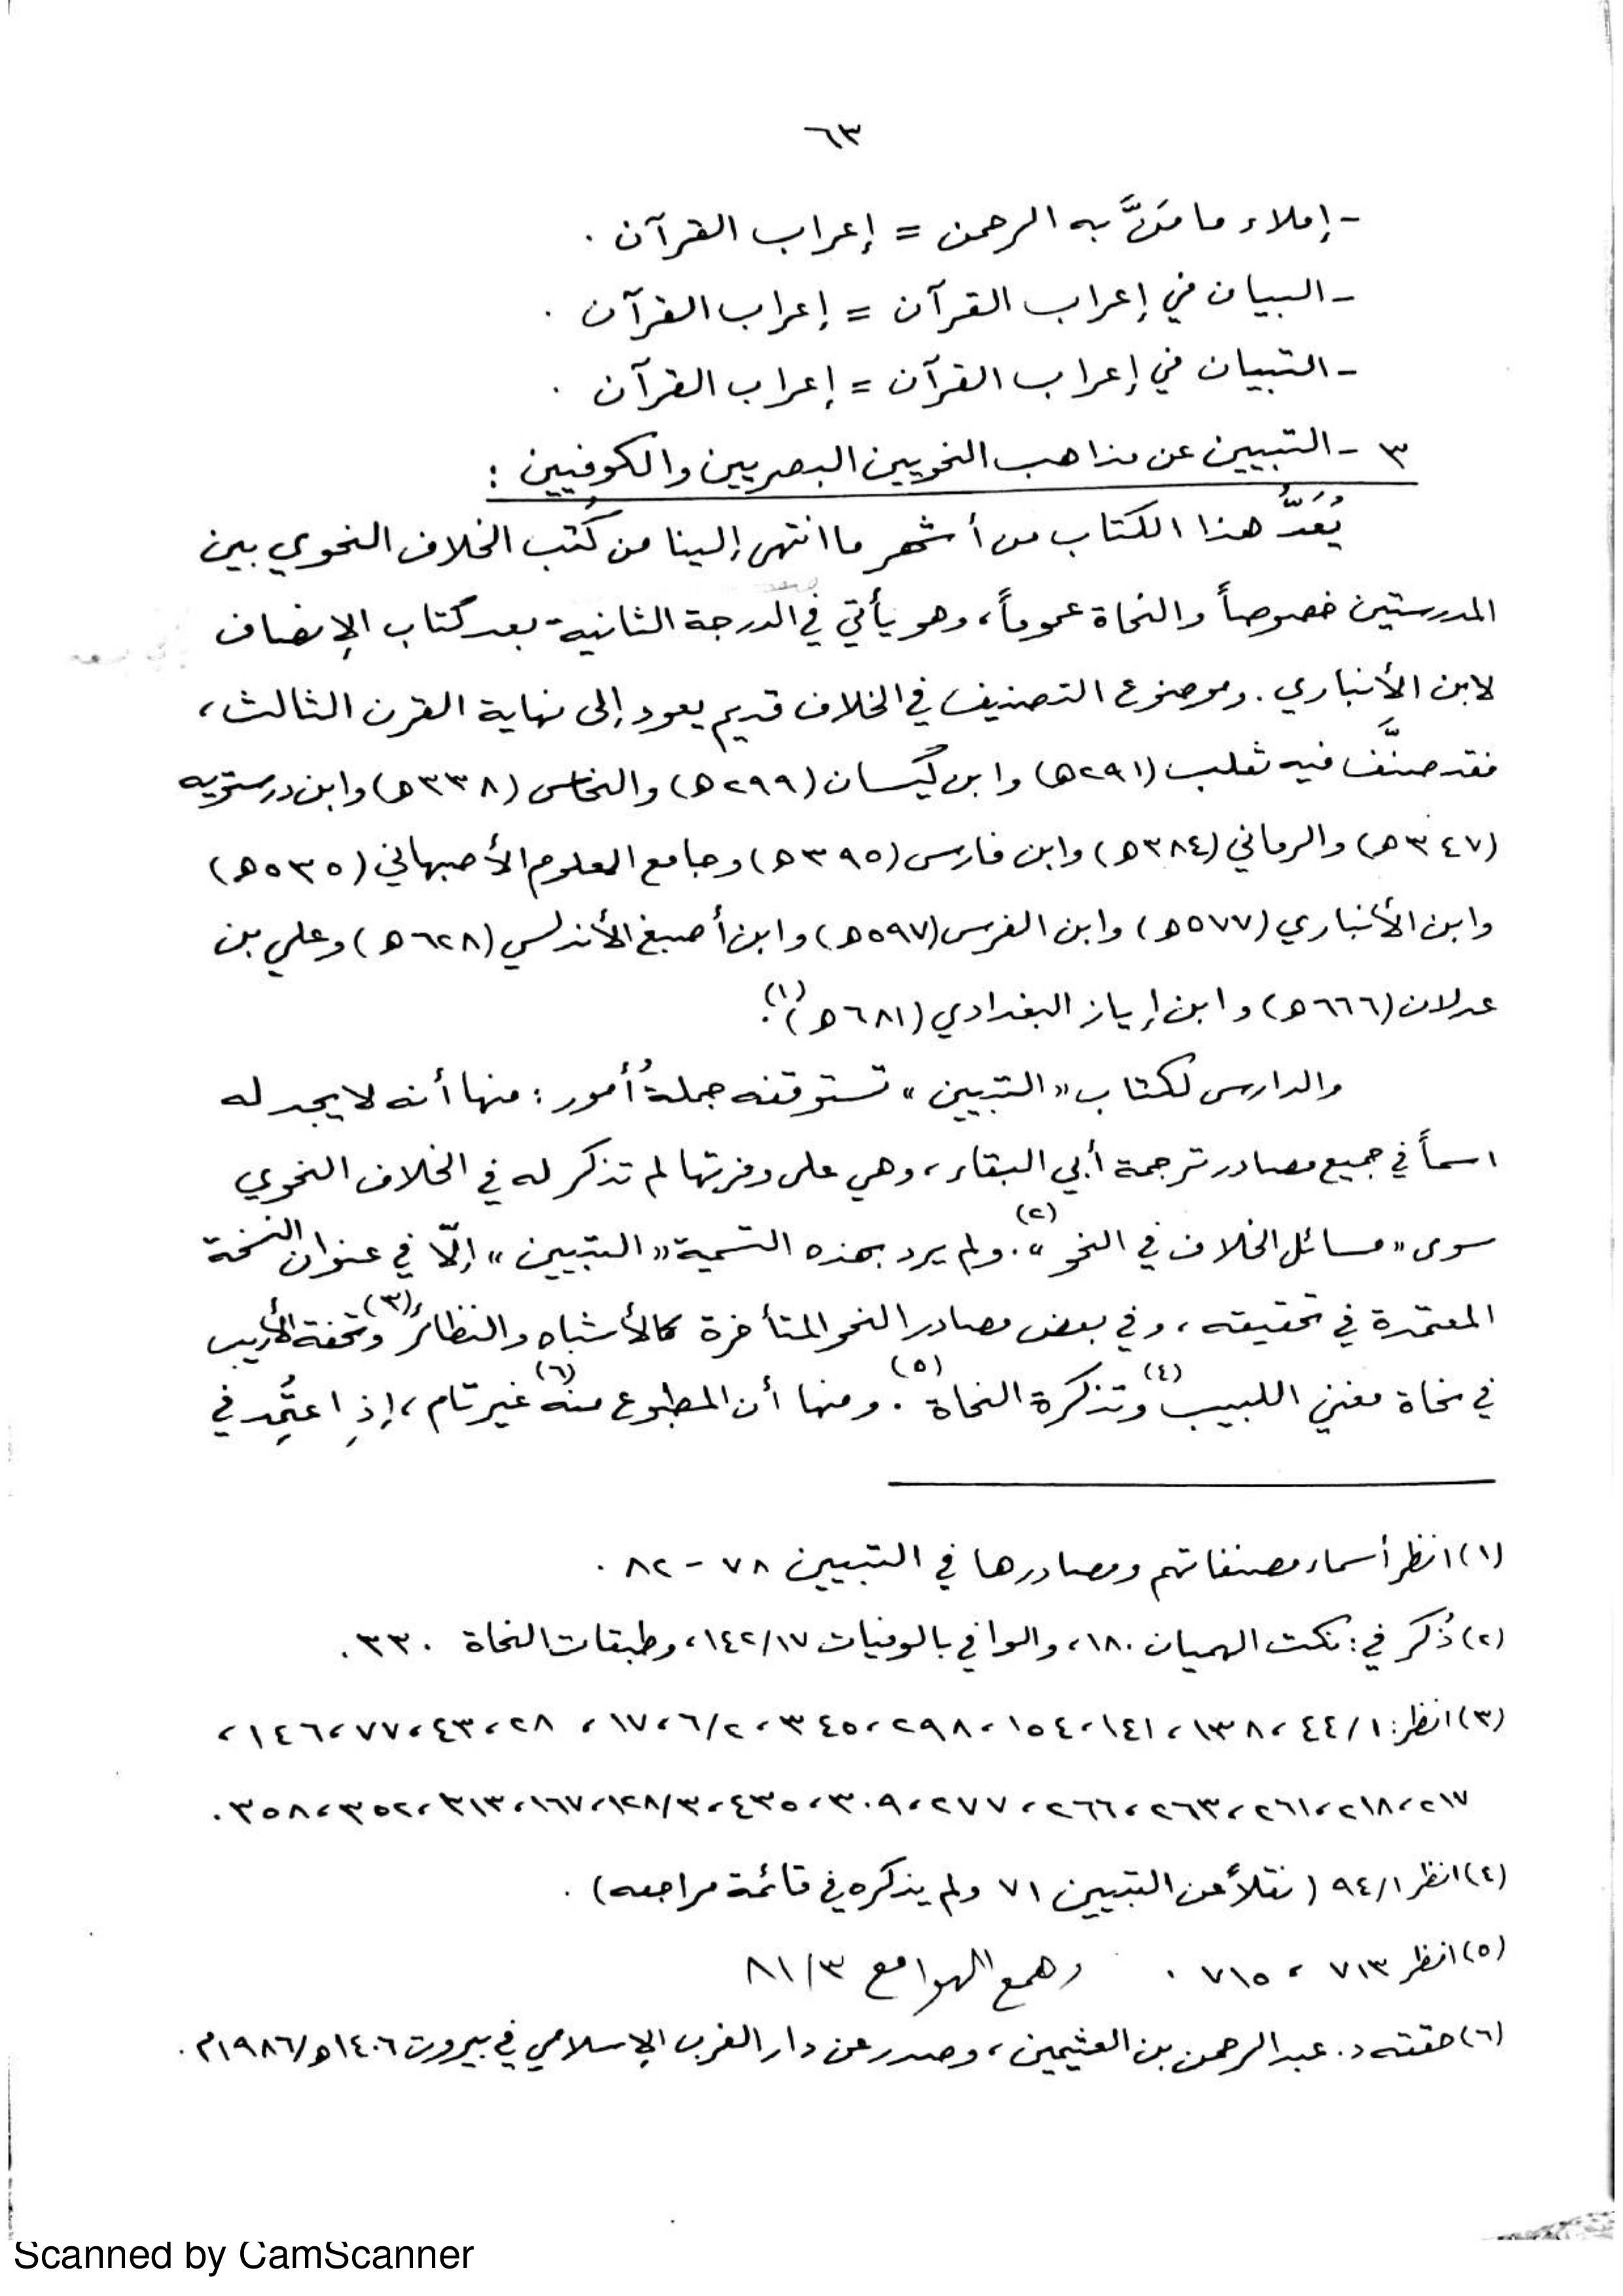 ٦٣
- إملاء ما مَنَّ به الرحمن = إعراب القرآن .
- البيان في إعراب القرآن = إعراب القرآن .
- التبيان في إعراب القرآن = إعراب القرآن .
٣ - التبيين عن مذاهب النحويين البصريين والكوفيين :
يُعَدُّ هذا الكتاب من أشهر ما انتهى إلينا من كُتب الخلاف النحوي بين
المدرستين خصوصاً والنحاة عموماً، وهو يأتي في الدرجة الثانية بعد كتاب الإنصاف
لابن الأنباري . وموضوع التصنيف في الخلاف قديم يعود إلى نهاية القرن الثالث،
فقد صنَّف فيه ثعلب (٢٩١ه) وابن كَيسان (٢٩٩ه) والنحاس (٣٣٨ه) وابن درستويه
(٣٤٧ه) والرماني (٣٨٤ه) وابن فارس (٣٩٥ه) وجامع العلوم الأصبهاني (٥٣٥ه)
وابن الأنباري (٥٧٧ه) وابن الفرس (٥٩٧ه) وابن أصبغ الأندلسي (٦٢٨ه) وعلي بن
عدلان (٦٦٦ه) وابن إياز البغدادي (٦٨١ه)(١).
والدارس لكتاب «التبيين» تستوقفه جملةُ أمور : منها أنه لا يجد له
اسماً في جميع مصادر ترجمة أبي البقاء، وهي على وفرتها لم تذكر له في الخلاف النحوي
سوى «مسائل الخلاف في النحو»(٢). ولم يرد بهذه التسمية «التبيين» إلّا في عنوان النسخة
المعتمدة في تحقيقه، وفي بعض مصادر النحو المتأخرة كالأشباه والنظائر(٣) وتحفة الأريب
في نحاة مغني اللبيب(٤) وتذكرة النحاة(٥). ومنها أن المطبوع منه(٦) غير تام، إذِ اعتُمِد في
(١) انظر أسماء مصنفاتهم ومصادرها في التبيين ٧٨ - ٨٢ .
(٢) ذُكر في : نكت الهميان ١٨٠، والوافي بالوفيات ١٤٢/١٧، وطبقات النحاة ٣٣٠ .
(٣) انظر : ٤٤/١، ١٣٨، ١٤١، ١٥٤، ٢٩٨، ٣٤٥، ٦/٢، ١٧، ٢٨، ٤٣، ٧٧، ١٤٦،
٢١٧، ٢١٨، ٢٦١، ٢٦٣، ٢٦٦، ٢٧٧، ٣٠٩، ٤٣٥، ١٢٨/٣، ١٦٧، ٣١٣، ٣٥٢، ٣٥٨ .
(٤) انظر ٩٤/١ (نقلاً عن التبيين ٧١ ولم يذكره في قائمة مراجعه) .
(٥) انظر ٧١٣، ٧١٥ . وهمع الهوامع ٨١/٣
(٦) حققته د. عبد الرحمن بن العثيمين، وصدر عن دار الغرب الإسلامي في بيروت ١٤٠٦ه/١٩٨٦م .
Scanned by CamScanner